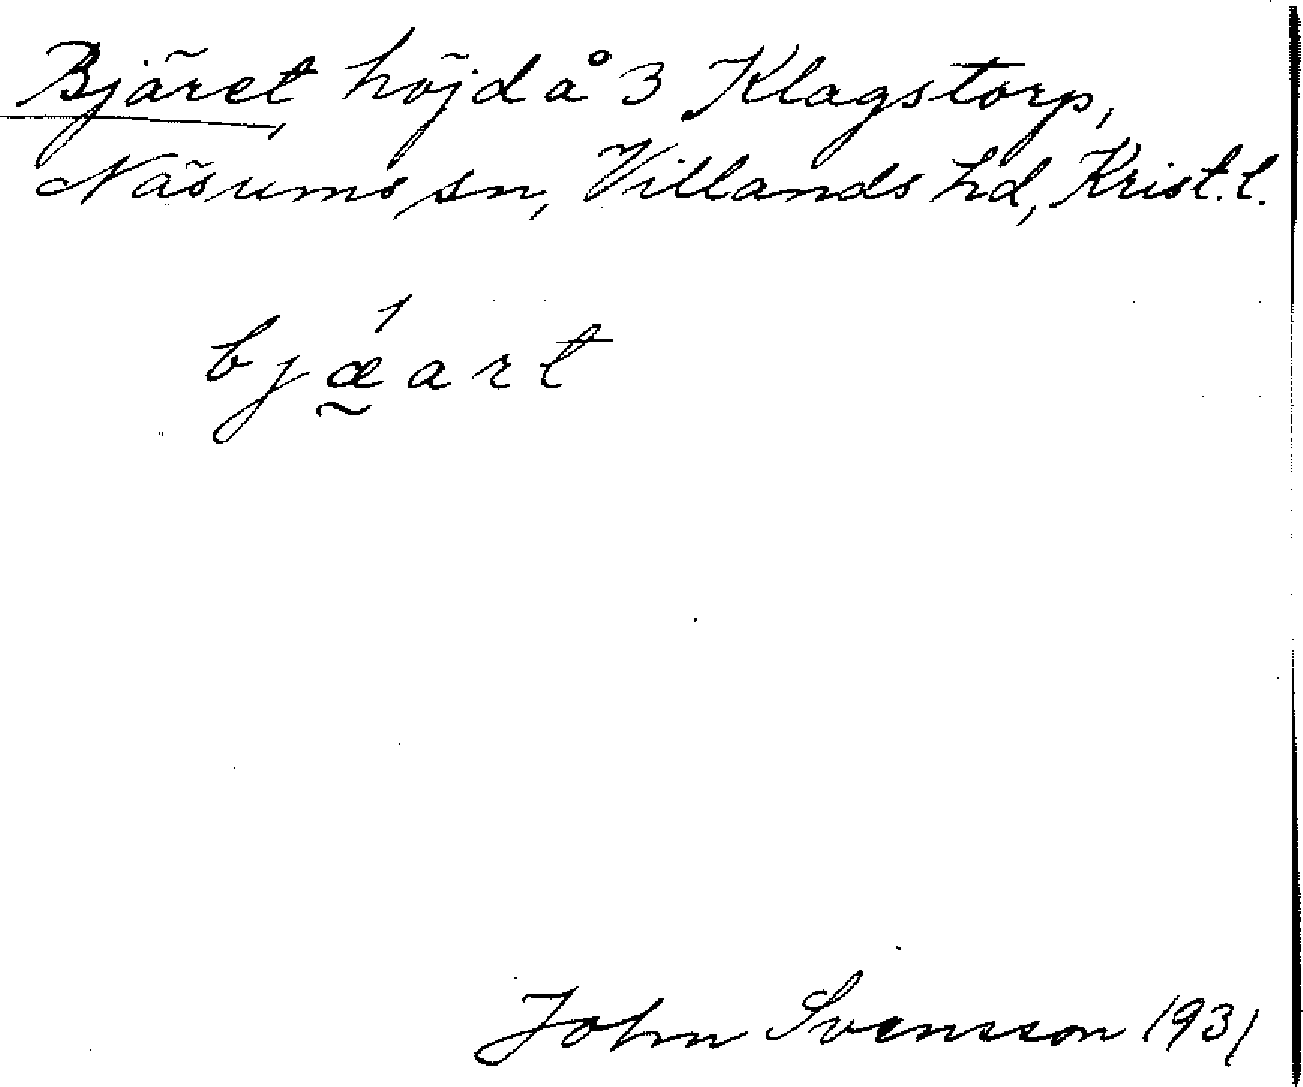 Bjäret, höjd å 3 Klagstorp,
Näsums sn, Villands hd, Krist. l.
bjǽ̰art
John Svensson 1931